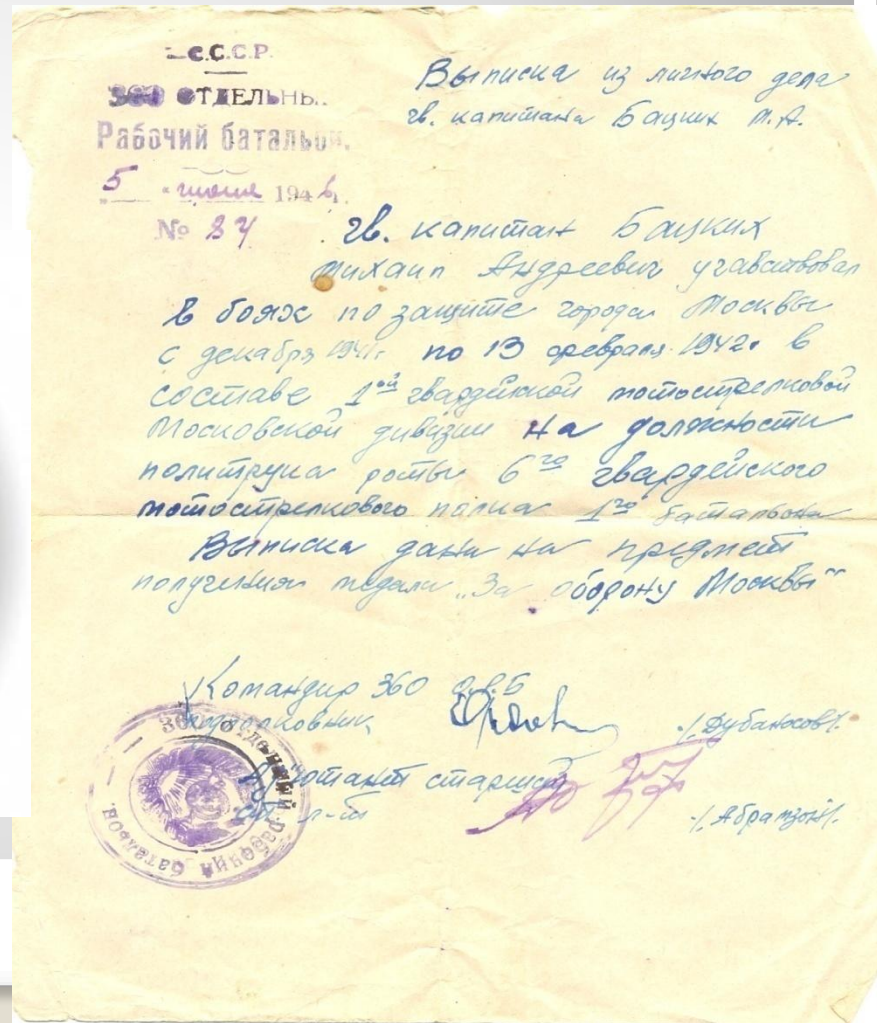 С.С.С.Р.
360 ОТДЕЛЬНЫ
Рабочий батальон.
5 июня 1946 г.
№ 84
Выписка из личного дела
гв. капитана Бацких М.А.
гв. капитан Бацких
Михаил Андреевич учавствовал
в боях по защите города Москвы
с декабря 1941г. по 13 февраля 1942г. в
составе 1ой гвардейской мотострелковой
Московской дивизии на должности
политрука роты 6го гвардейского
мотострелкового полка 1го батальона
Выписка дана на предмет
получения медали „За оборону Москвы"
Командир 360 о.р.б
подполковник /Дубанасов/.
Адютант старший
ст. л-т /Абрамзон/.
360 отдельный рабочий батальон